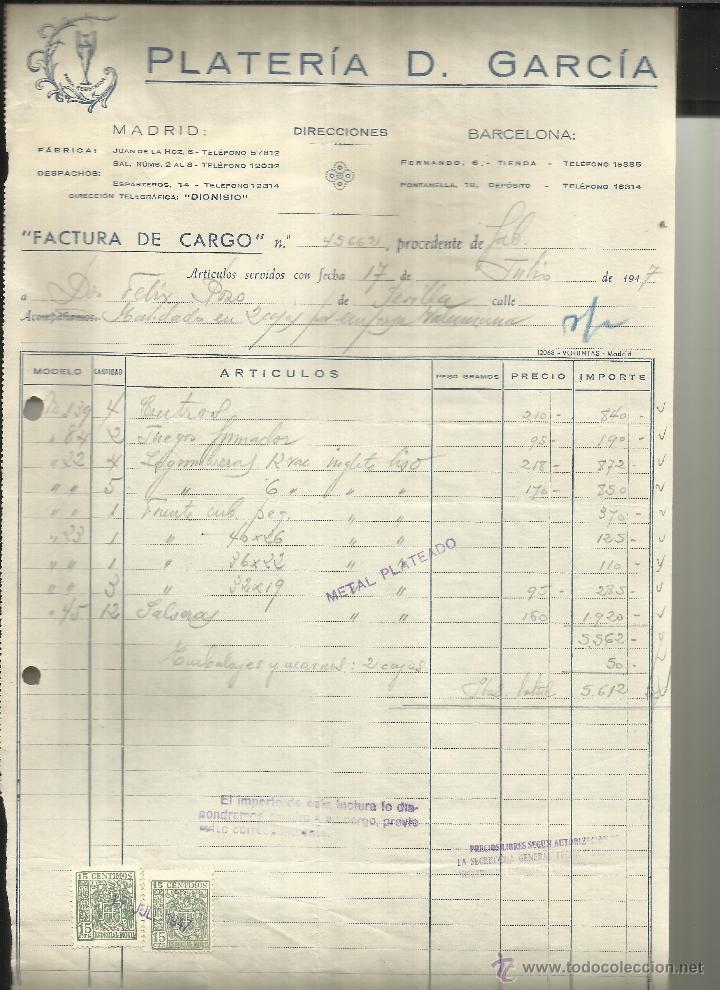 MARCA REGISTRADA
PLATERÍA D. GARCÍA
MADRID: DIRECCIONES BARCELONA:
FÁBRICA: JUAN DE LA HOZ, 6 - TELÉFONO 57812
DESPACHOS: SAL, NÚMS. 2 AL 8 - TELÉFONO 12032
ESPARTEROS, 14 - TELÉFONO 12314
DIRECCIÓN TELEGRÁFICA: "DIONISIO"
FERNANDO, 6, - TIENDA - TELÉFONO 15385
FONTANELLA, 18, DEPÓSITO - TELÉFONO 18314
"FACTURA DE CARGO" n.º 456621, procedente de fab.
Artículos servidos con fecha 17 de Julio de 1947
a Don Felix Pozo de Sevilla calle
Acompañamos Mandado en 2 cajas por Valenciana
12068 - VOLUNTAS - Madrid
MODELO CANTIDAD ARTICULOS PESO GRAMOS PRECIO IMPORTE
139 4 Centros 210 - 840 -
" 84 2 Juegos fumador 95 - 190 -
" 22 4 Legumbreras 12 rac inglete liso 218 - 872 -
" " 5 " 6 " " " 170 - 850
" " 1 Fuente cub. peq. " " 370 -
" 23 1 " 46x26 " " 125 -
" " 1 " 36x22 " " 110 -
" " 3 " 32x19 " " 95 - 285 -
" 45 12 Salseras " " 160 1.920 -
METAL PLATEADO
5.562 -
Embalajes y acarreos: 2 cajas 50 -
Ptas. total 5.612
El importe de esta factura lo dis-
pondremos a su cargo, previo
PRECIOS LIBRES SEGUN AUTORIZACION
LA SECRETARIA GENERAL
15 CENTIMOS 15 CENTIMOS
JUL 1947
15 CTS. 15
ESPECIAL MOVIL ESPECIAL MOVIL
www.todocoleccion.net